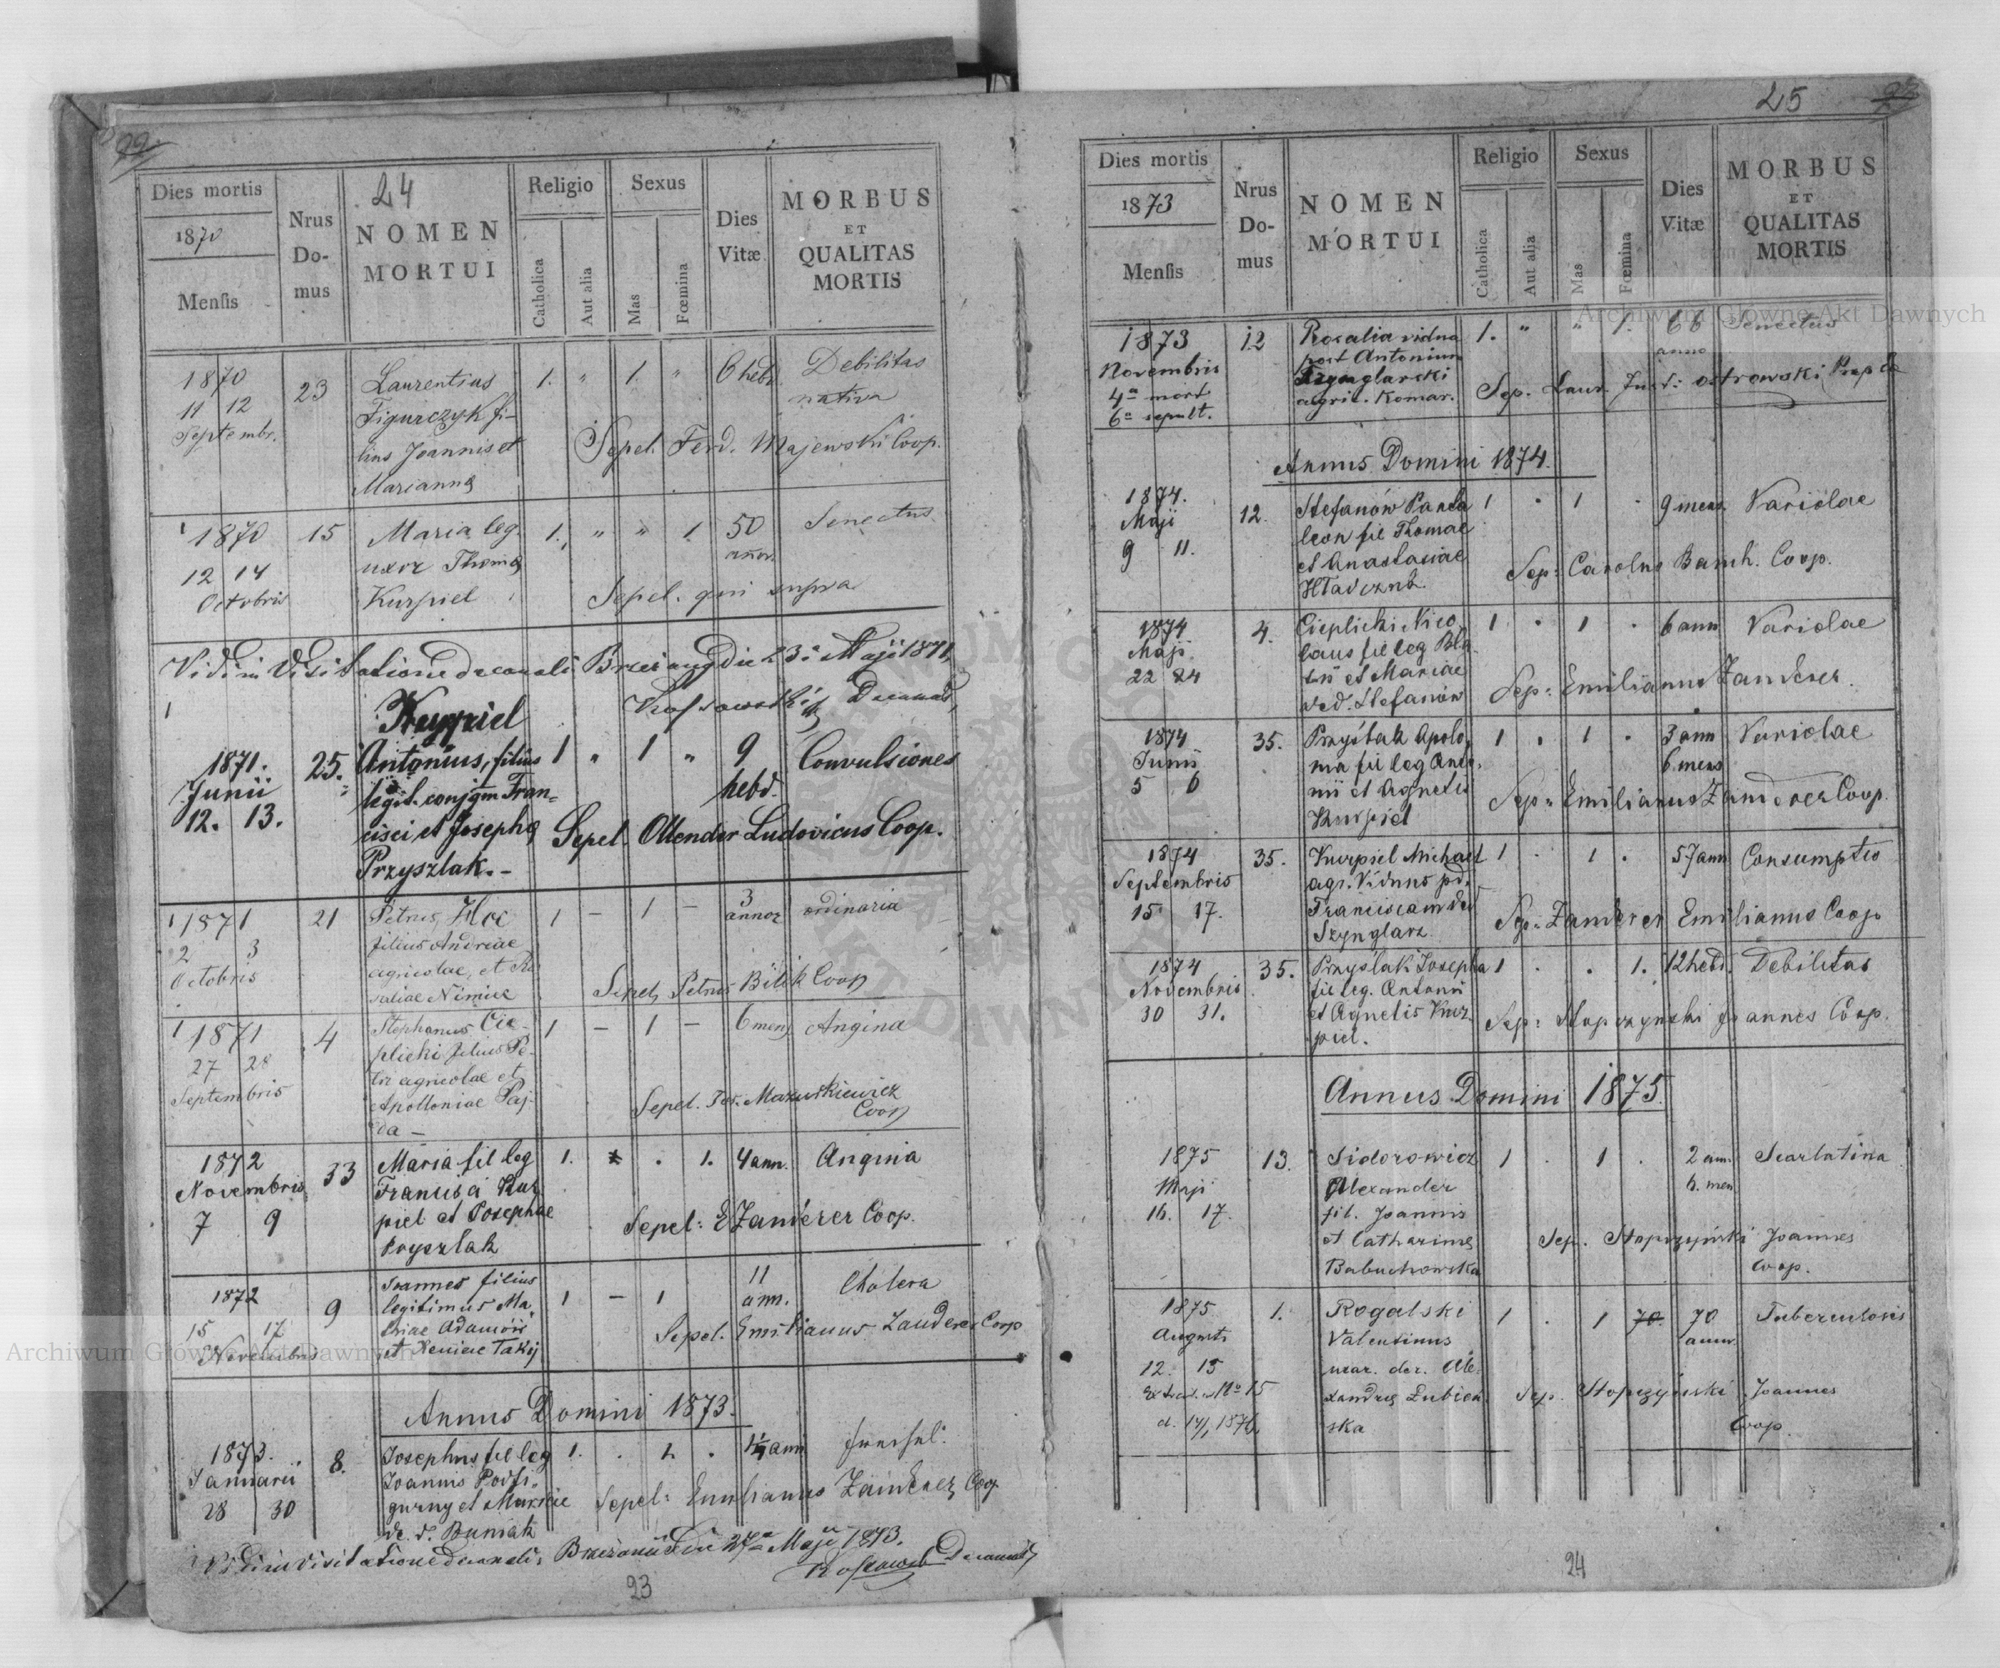 24
Dies mortis
1870
Mensis
Nrus Domus
NOMEN MORTUI
Religio
Catholica
Aut alia
Sexus
Mas
Fœmina
Dies Vitæ
MORBUS ET QUALITAS MORTIS
1870 23 Laurentius 1. " 1. " 6 hebd Debilitas
11 12 Figurczyk fi- nativa
Septembr. lius Joannis et Sepel. Ferd. Majewski Coop.
Mariannę
1870 15 Maria leg. 1. " " 1. 50 Senectus
12 14 uxor Thomę annor.
Octobris Kurpiel Sepel. qui supra
Vidi in Visitatione decanali Brzeżany die 23 Maji 1871,
Decanus
Kurpiel
1871. 25. Antonius, filius 1 " 1 " 9 Convulsiones
Junii legit. conjgm Fran= hebd.
12. 13. cisci et Josephę Sepel. Ollender Ludovicus Coop.
Przyszlak.-
1871 21 Petrus 1 - 1 - 3 annor ordinaria
2 3 filius Andreae
Octobris agricolae, et Ro
saliae Sepel. Petrus Bilik Coop
1871 4 Stephanus Cie- 1 - 1 - 6 mens Angina
27 28 plicki filius Pe-
Septembris tri agricolae et
Apolloniae Paj- Sepel. Fer. Mazurkiewicz
da - Coop
1872 33 Maria fil leg 1. . 1. 4 ann. Angina
Novembris Francisci Kur
7 9 piel et Josephae Sepel: E Zanderer Coop.
Pryszlak
1872 9 Joannes filius 1 - 1 11 ann. Cholera
15 17 legitimus Ma-
Novembris Sepel. Emilianus Zanderer Coop
Annus Domini 1873.
1873. 8. Josephus fil leg 1. . 1. .
Januarii Joannis Podfi-
28 30 gurny et Mariae Sepel: Emilianus Zanderer Coop.
de d. Buniak
Vidi in visitatione decanali Brzeżanii Die 27ª Maji 1873.
Decanus
23
25
Dies mortis
1873
Mensis
Nrus Domus
NOMEN MORTUI
Religio
Catholica
Aut alia
Sexus
Mas
Fœmina
Dies Vitæ
MORBUS ET QUALITAS MORTIS
1873 12 Rosalia vidua 1. " " 1. 66 Senectus
Novembris post Antonium anno
4ª mort Szynglarski Sep. Laur. Just: Ostrowski
6ª sepult. agric. Komar.
Annus Domini 1874.
1874. 12. Stefanów Panta 1 . 1 . 9 mens Variolae
Maji leon fil Thomae
9 11. et Anastasiae Sep: Carolus Coop.
1874 4. Cieplicki Nico 1 . 1 . 6 ann Variolae
Maji laus fil leg
22 24 et Mariae Sep: Emilianus Zanderer.
de d. Stefanów
1874 35. Przyślak Apolo 1 . 1 . 3 ann Variolae
Junii nia fil leg Anto- 6 mens
5 6 nii et Agnetis Sep: Emilianus Zanderer Coop.
Kurpiel
1874 35. Kurpiel Michael 1 . 1 . 57 ann Consumptio
Septembris agr. Viduus pd.
15 17. Franciscam de Sep: Zanderer Emilianus Coop
Szynglarz
1874 35. Przyslak Josepha 1 . . 1. 12 hebd. Debilitas
Novembris fil leg. Antonii
30 31. et Agnetis Kur- Sep: Stopczyński Joannes Coop.
piel.
Annus Domini 1875.
1875 13. Sidorowicz 1 . 1 . 2 ann. Scarlatina
Maji Alexander 6. men
16. 17. fil. Joannis
et Catharinę Sep. Stopczyński Joannes
Babuchowska Coop.
1875 1. Rogalski 1 . 1 70 70 Tuberculosis
Augusti Valentinus annor
12. 15 mar. der. Ale-
xandrę Łubień Sep. Stopczyński Joannes
ska Coop.
24
Archiwum Główne Akt Dawnych
Archiwum Główne Akt Dawnych